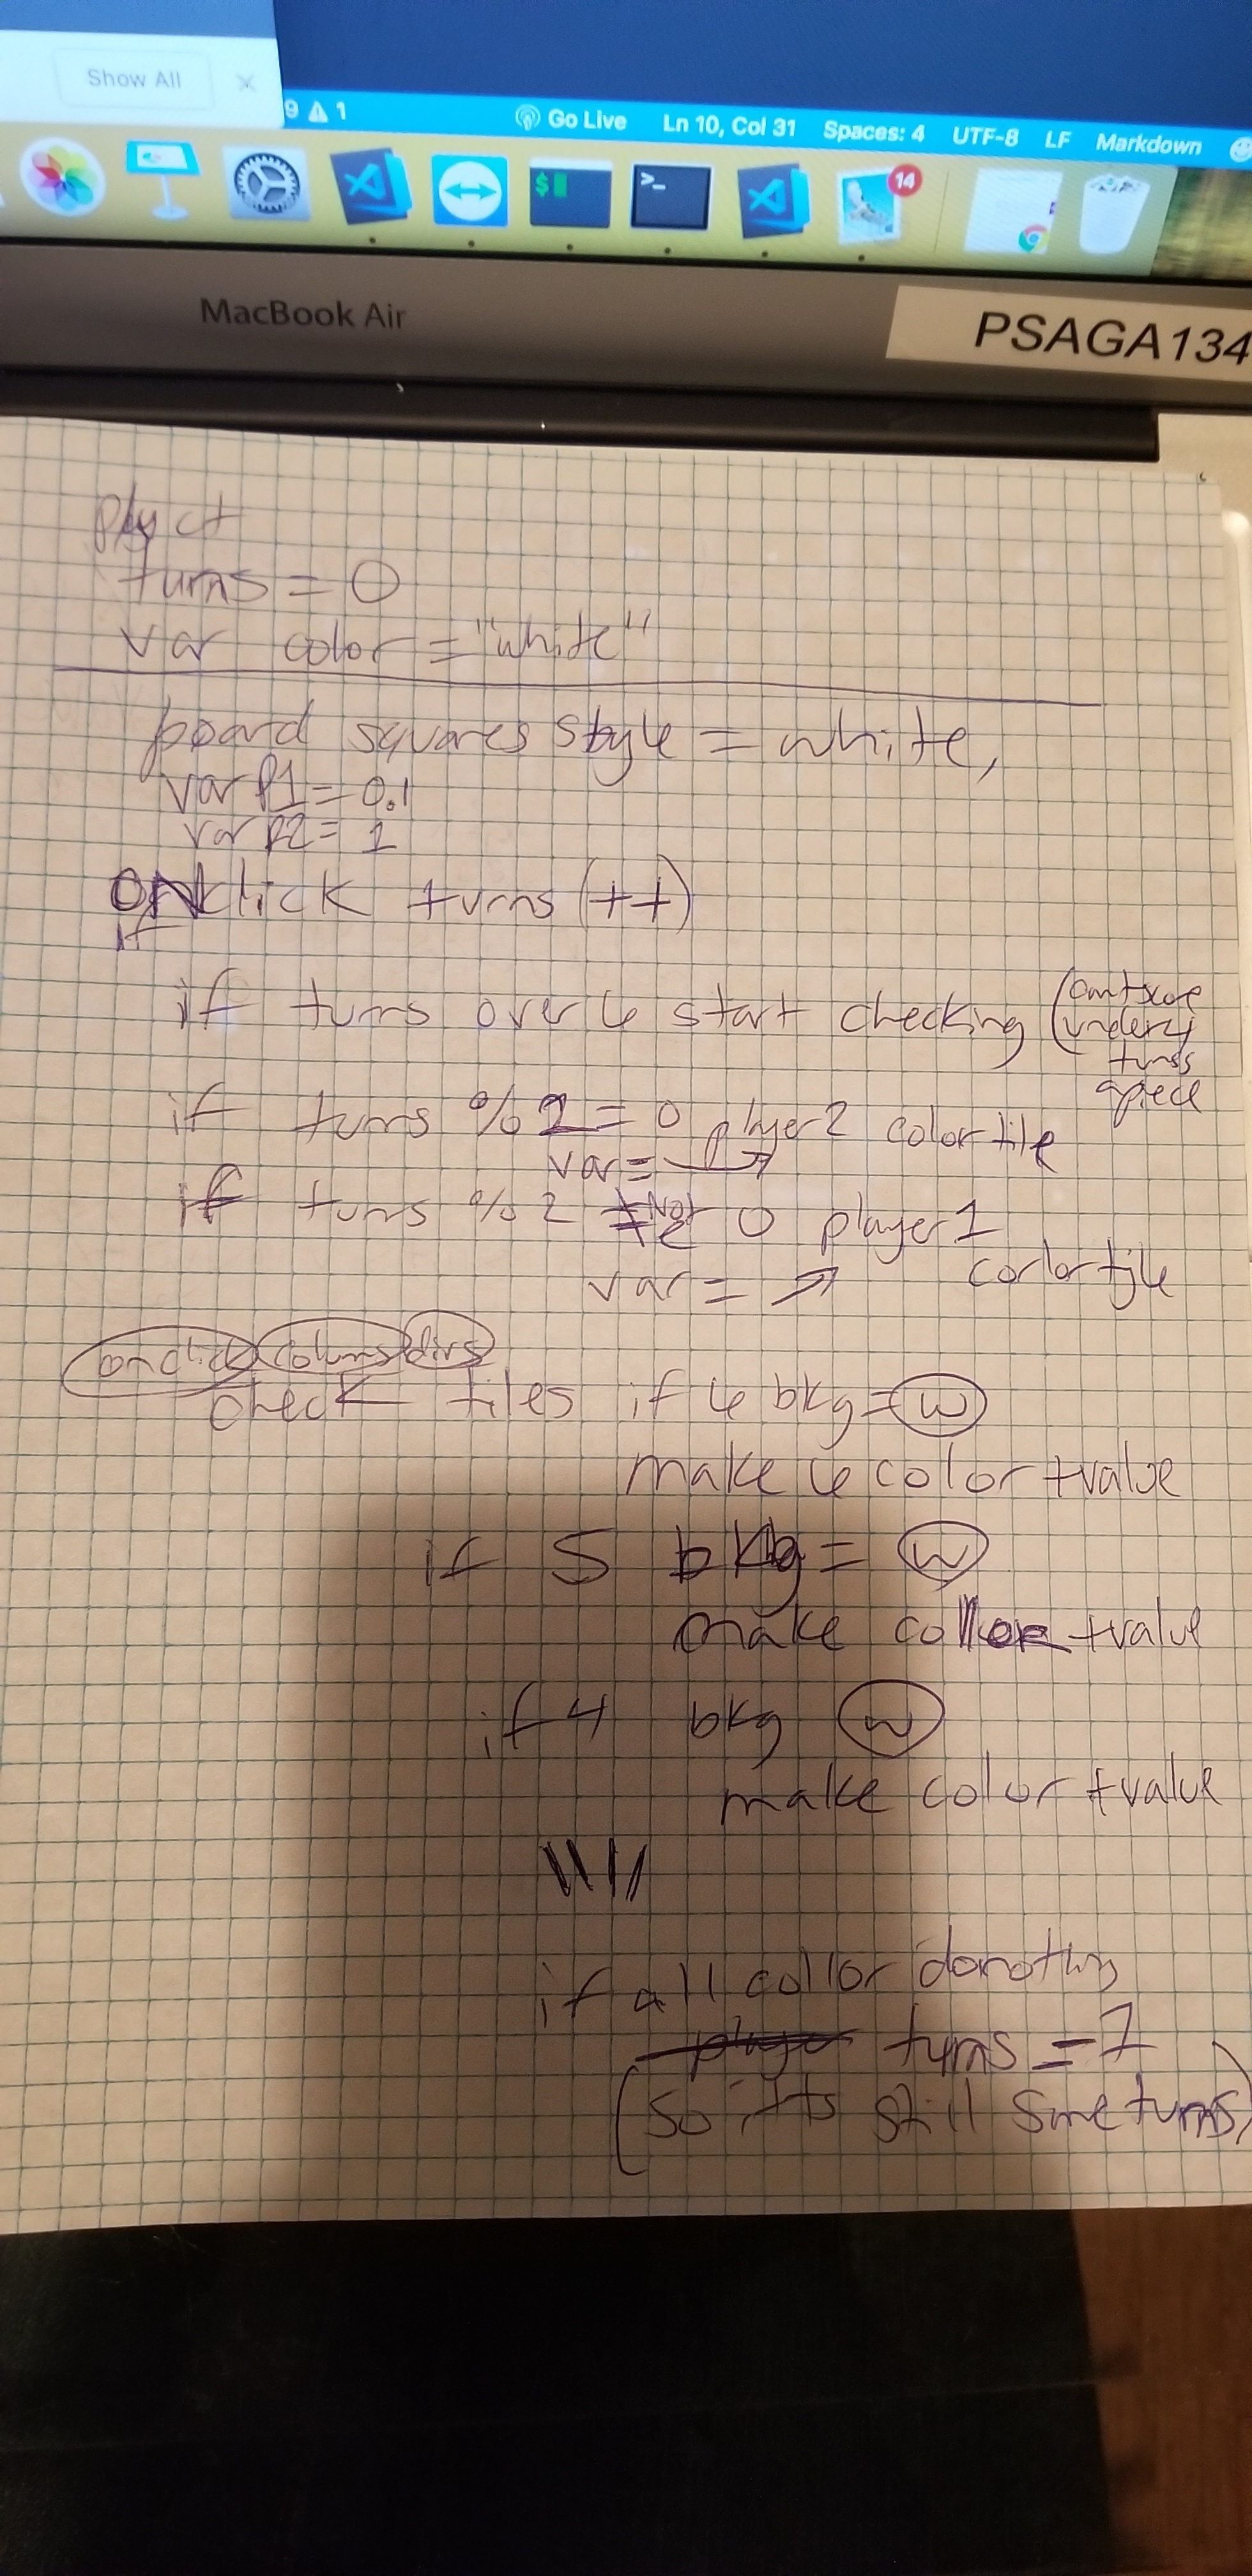 Show All ×
9 ⚠ 1 Go Live Ln 10, Col 31 Spaces: 4 UTF-8 LF Markdown
$ >_ 14
MacBook Air
PSAGA134
ct
turns = 0
var color = "white"
board squares style = white,
var P1 = 0.1
var P2 = 1
ONclick turns (++)
if
if turns over 6 start checking (
turns
apiece
if turns % 2 = 0 player 2 color tile
var =
if turns % 2 Not 0 player 1
var = corlor tile
onclick colums divs
check tiles if 6 bkg = W
make 6 color + value
if 5 bkg = W
make color + value
if 4 bkg W
make color + value
\\//
if all collor donothing
player turns = -1
(so its still same turns)